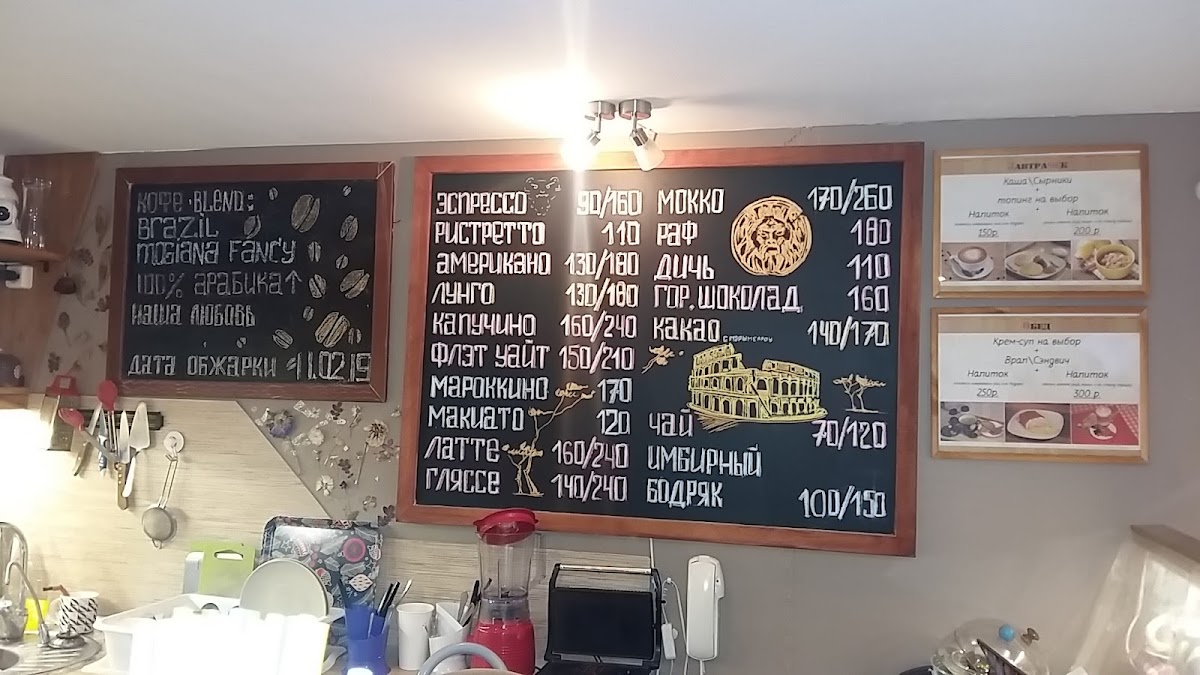 КОФЕ BLEND:
BRAZIL
MOGIANA FANCY
100% АРАБИКА↑
НАША ЛЮБОВЬ
ДАТА ОБЖАРКИ 11.02.19
ЭСПРЕССО 90/160
РИСТРЕТТО 110
АМЕРИКАНО 130/180
ЛУНГО 130/180
КАПУЧИНО 160/240
ФЛЭТ УАЙТ 150/210
МАРОККИНО 170
МАКИАТО 120
ЛАТТЕ 160/240
ГЛЯССЕ 140/240
МОККО 170/260
РАФ 180
ДИЧЬ 110
ГОР. ШОКОЛАД 160
КАКАО 140/170
ЧАЙ 70/120
ИМБИРНЫЙ
БОДРЯК 100/150
ЗАВТРАК
Каша\Сырники
+
топинг на выбор
Напиток Напиток
150р. 200 р
ОБЕД
Крем-суп на выбор
+
Врап\Сэндвич
Напиток + Напиток
250р. 300 р.